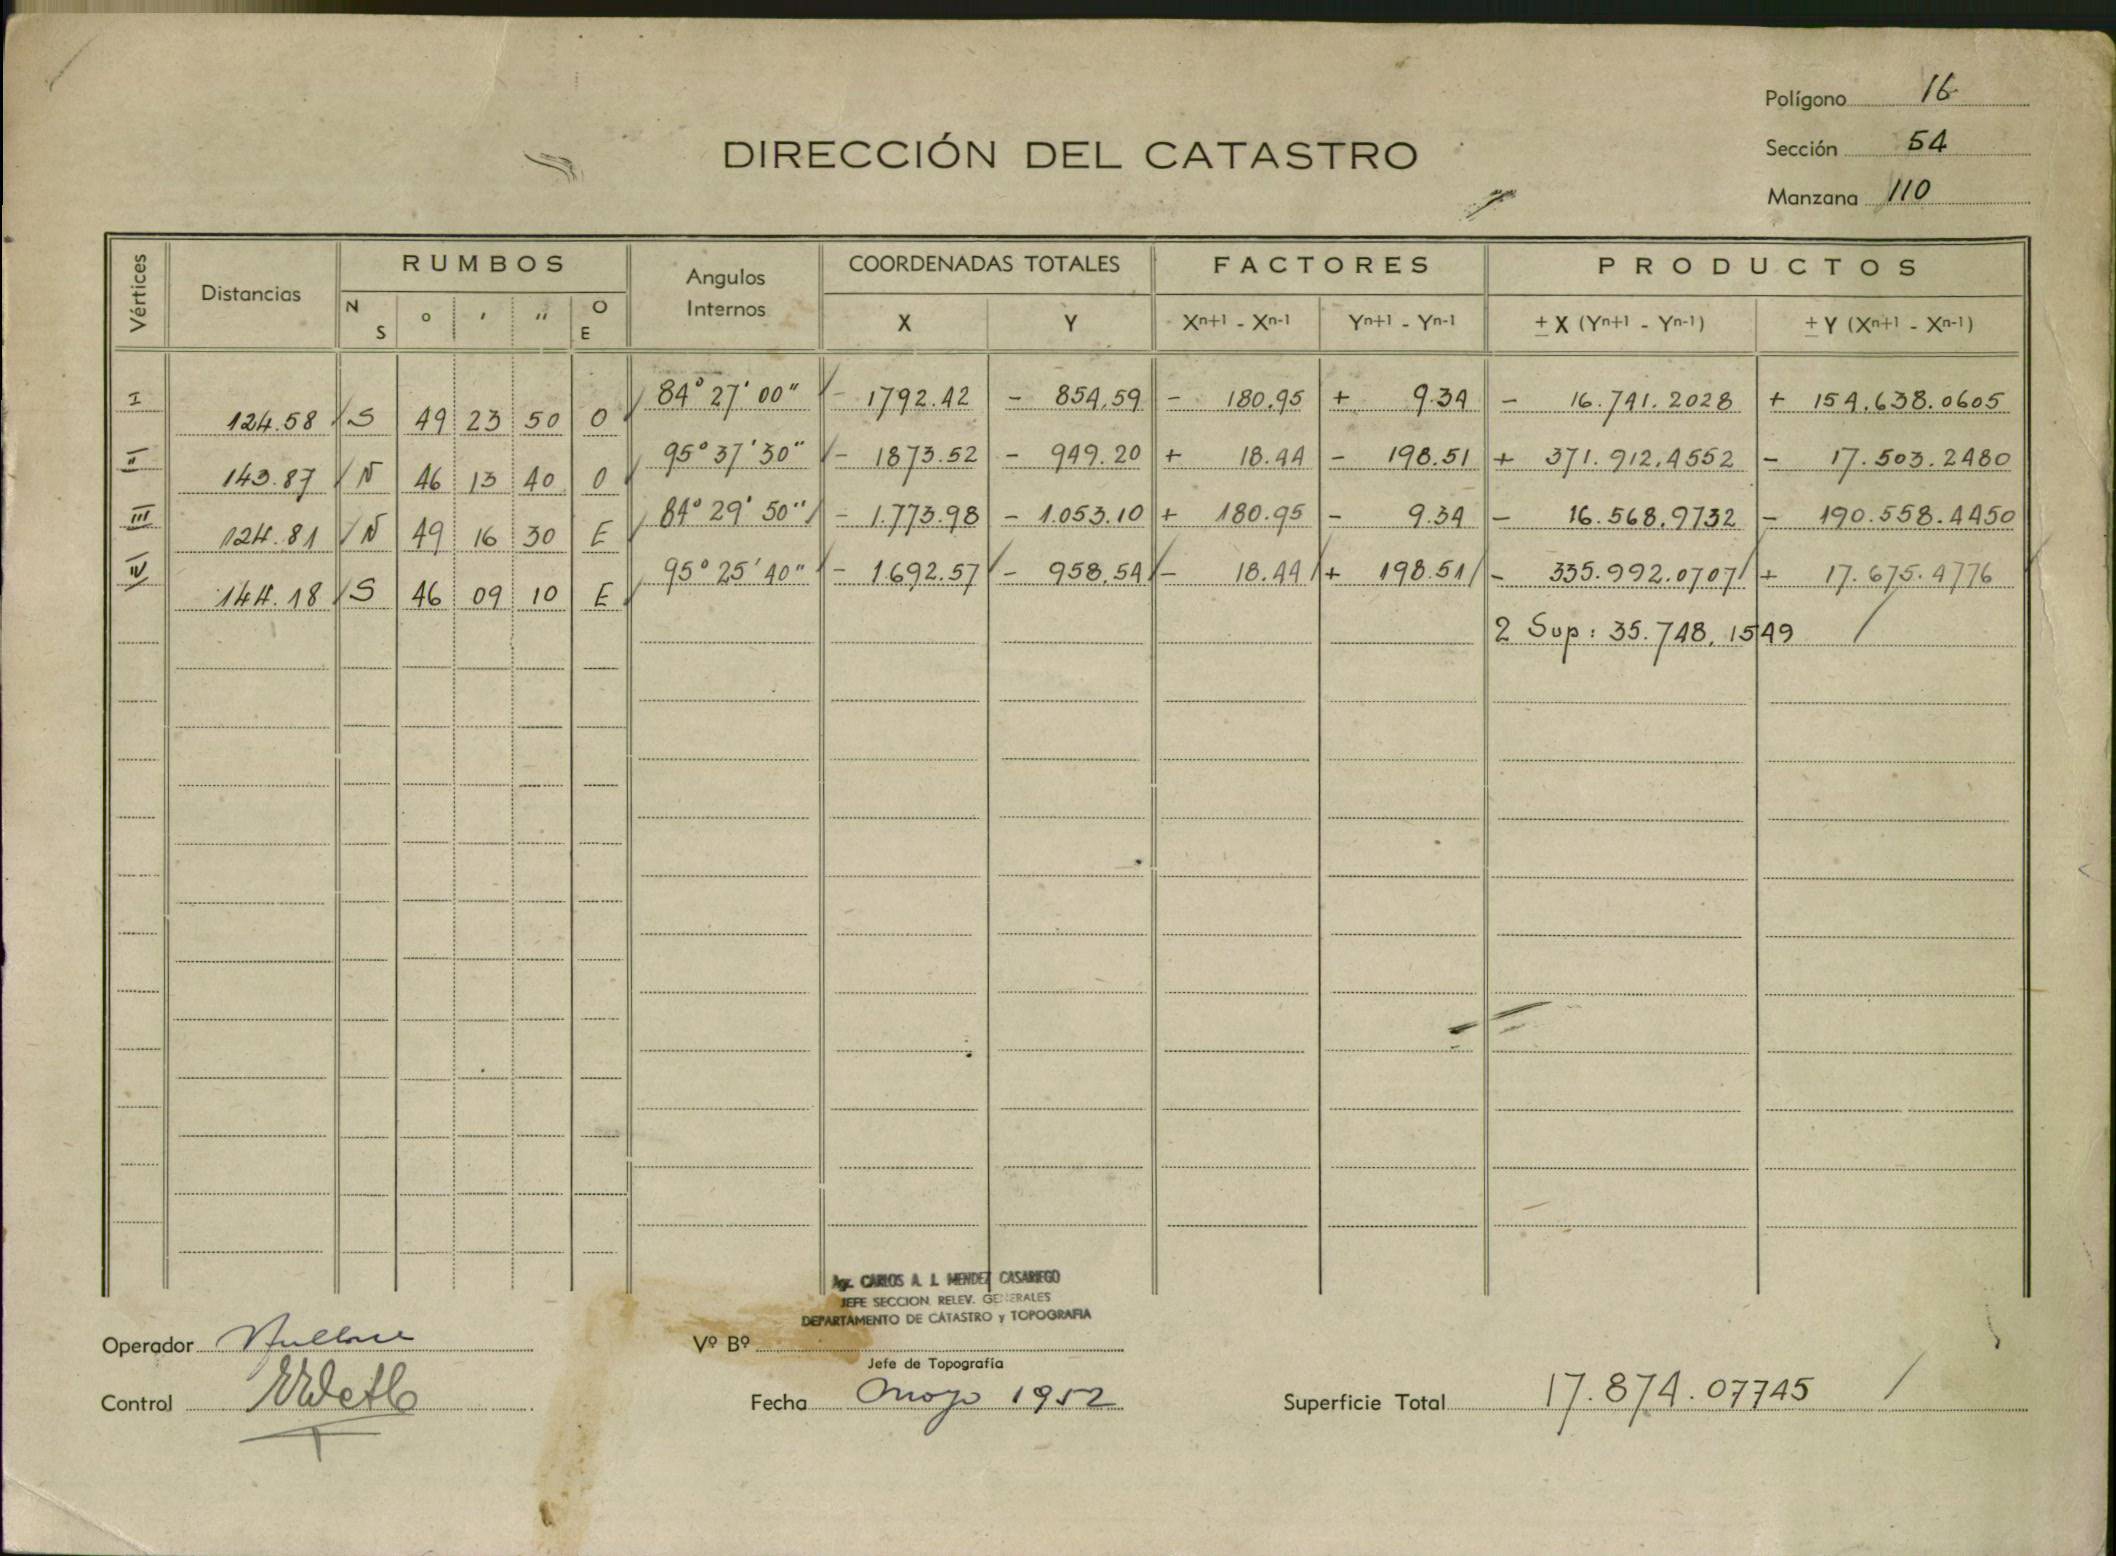 Polígono 16
DIRECCIÓN DEL CATASTRO
Sección 54
Manzana 110
Vértices Distancias RUMBOS Angulos Internos COORDENADAS TOTALES FACTORES PRODUCTOS
N S o ' " O E X Y Xn+1 - Xn-1 Yn+1 - Yn-1 ± X (Yn+1 - Yn-1) ± Y (Xn+1 - Xn-1)
I 84° 27' 00" - 1792.42 - 854.59 - 180.95 + 9.34 - 16.741.2028 + 154.638.0605
124.58 S 49 23 50 O
II 95° 37' 30" - 1873.52 - 949.20 + 18.44 - 198.51 + 371.912.4552 - 17.503.2480
143.87 N 46 13 40 O
III 84° 29' 50" - 1.773.98 - 1.053.10 + 180.95 - 9.34 - 16.568.9732 - 190.558.4450
124.81 N 49 16 30 E
IV 95° 25' 40" - 1.692.57 - 958.54 - 18.44 + 198.51 - 335.992.0707 + 17.675.4776
144.18 S 46 09 10 E
2 Sup: 35.748.1549
Agr. CARLOS A. I. MENDEZ CASARIEGO
JEFE SECCION RELEV. GENERALES
DEPARTAMENTO DE CATASTRO y TOPOGRAFIA
Operador
Vº Bº
Jefe de Topografía
Control
Fecha Mayo 1952
Superficie Total 17.874.07745